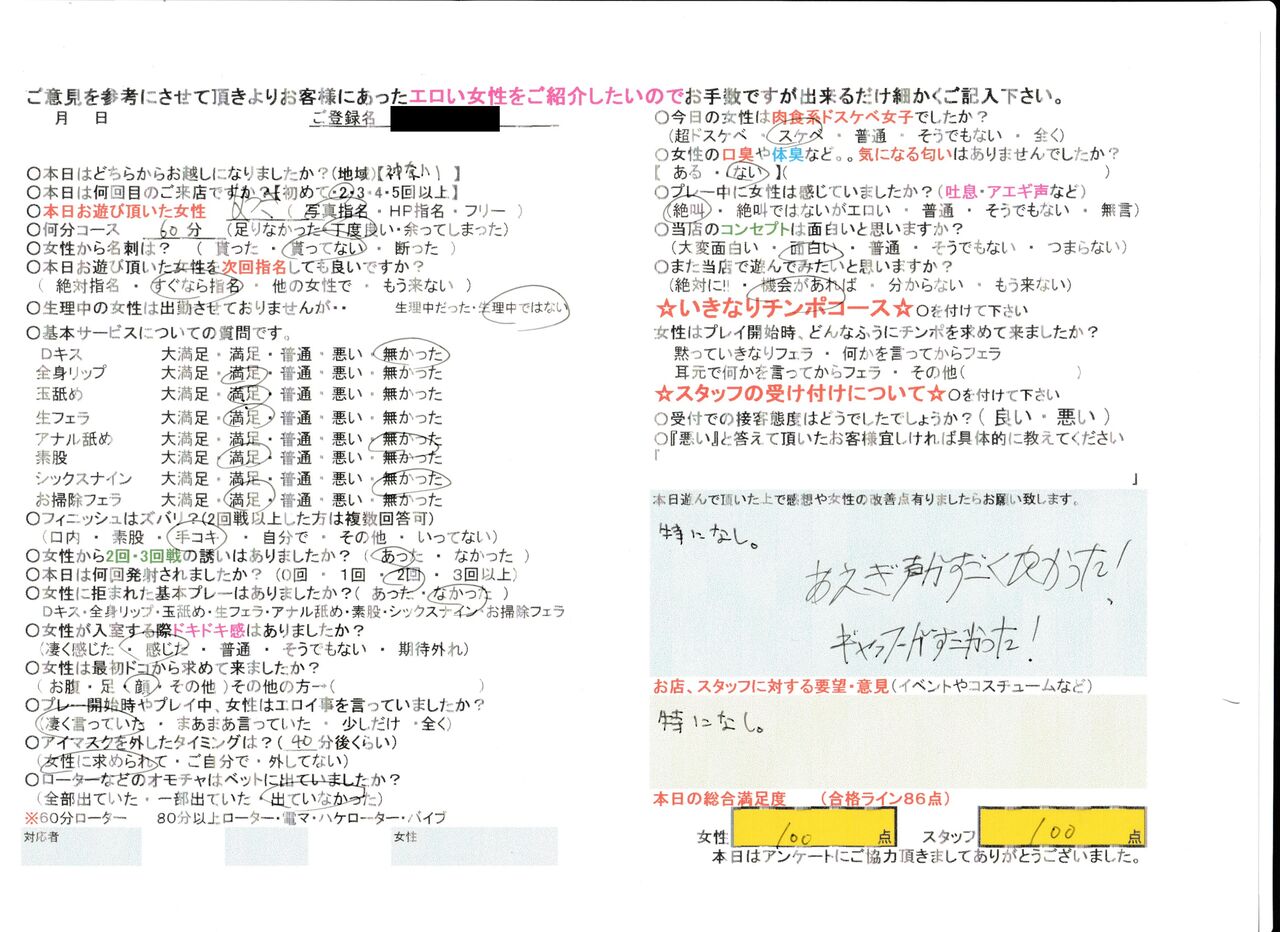 ご意見を参考にさせて頂きよりお客様にあったエロい女性をご紹介したいのでお手数ですが出来るだけ細かくご記入下さい。
月 日
ご登録名
〇本日はどちらからお越しになりましたか?(地域)【神奈川】
〇本日は何回目のご来店ですか?【初めて・2・3・4・5回以上】
〇本日お遊び頂いた女性 ( 写真指名・HP指名・フリー )
〇何分コース 60分 (足りなかった・丁度良い・余ってしまった)
〇女性から名刺は? ( 貰った・貰ってない・断った )
〇本日お遊び頂いた女性を次回指名しても良いですか?
( 絶対指名・すぐなら指名・他の女性で・もう来ない )
〇生理中の女性は出勤させておりませんが・・ 生理中だった・生理中ではない
〇基本サービスについての質問です。
Dキス 大満足・満足・普通・悪い・無かった
全身リップ 大満足・満足・普通・悪い・無かった
玉舐め 大満足・満足・普通・悪い・無かった
生フェラ 大満足・満足・普通・悪い・無かった
アナル舐め 大満足・満足・普通・悪い・無かった
素股 大満足・満足・普通・悪い・無かった
シックスナイン 大満足・満足・普通・悪い・無かった
お掃除フェラ 大満足・満足・普通・悪い・無かった
〇フィニッシュはズバリ?(2回戦以上した方は複数回答可)
(口内・素股・手コキ・自分で・その他・いってない)
〇女性から2回・3回戦の誘いはありましたか? ( あった・なかった )
〇本日は何回発射されましたか? (0回・1回・2回・3回以上)
〇女性に拒まれた基本プレーはありましたか?( あった・なかった )
Dキス・全身リップ・玉舐め・生フェラ・アナル舐め・素股・シックスナイン・お掃除フェラ
〇女性が入室する際ドキドキ感はありましたか?
(凄く感じた・感じた・普通・そうでもない・期待外れ)
〇女性は最初ドコから求めて来ましたか?
( お腹・足・顔・その他 )その他の方→( )
〇プレー開始時やプレイ中、女性はエロイ事を言っていましたか?
(凄く言っていた・まあまあ言っていた・少しだけ・全く)
〇アイマスクを外したタイミングは?( 40分後くらい)
(女性に求められて・ご自分で・外してない)
〇ローターなどのオモチャはベットに出ていましたか?
(全部出ていた・一部出ていた・出ていなかった)
※60分ローター 80分以上ローター・電マ・ハケローター・バイブ
対応者 女性
〇今日の女性は肉食系ドスケベ女子でしたか?
(超ドスケベ・スケベ・普通・そうでもない・全く)
〇女性の口臭や体臭など。。気になる匂いはありませんでしたか?
[ ある・ない 】( )
〇プレー中に女性は感じていましたか?(吐息・アエギ声など)
(絶叫・絶叫ではないがエロい・普通・そうでもない・無言)
〇当店のコンセプトは面白いと思いますか?
(大変面白い・面白い・普通・そうでもない・つまらない)
〇また当店で遊んでみたいと思いますか?
(絶対に!!・機会があれば・分からない・もう来ない)
☆いきなりチンポコース☆〇を付けて下さい
女性はプレイ開始時、どんなふうにチンポを求めて来ましたか?
黙っていきなりフェラ・何かを言ってからフェラ
耳元で何かを言ってからフェラ・その他( )
☆スタッフの受け付けについて☆〇を付けて下さい
〇受付での接客態度はどうでしたでしょうか?( 良い・悪い )
〇『悪い』と答えて頂いたお客様宜しければ具体的に教えてください
『
」
本日遊んで頂いた上で感想や女性の改善点有りましたらお願い致します。
特になし。
あえぎ声がすごくよかった!
ギャップがすごかった!
お店、スタッフに対する要望・意見(イベントやコスチュームなど)
特になし。
本日の総合満足度 (合格ライン86点)
女性 100 点 スタッフ 100 点
本日はアンケートにご協力頂きましてありがとうございました。